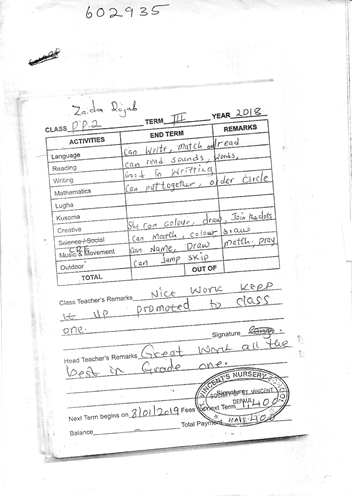 602935
Zaida Rajab
CLASS PP.2 TERM III YEAR 2018
ACTIVITIES END TERM REMARKS
Language Can write, match and read
Reading can read sounds, words,
Writing Good in writting
Mathematics Can put together, order circle
Lugha
Kusoma
Creative She can colour, draw, Join the dots
Science / Social Can match, colour draw
Music & Movement Can Name, Draw match, pray
Outdoor Can Jump skip
TOTAL OUT OF
Class Teacher's Remarks Nice Work Keep
it up promoted to class
one. Signature
Head Teacher's Remarks Great Work all the
best in Grade one.
ST. VINCENT'S NURSERY SCHOOL
Signature
SOCIETY OF ST. VINCENT
DEPAUL
Next Term begins on 8/01/2019 Fees for next Term 1,400
Balance Total Payment 1400